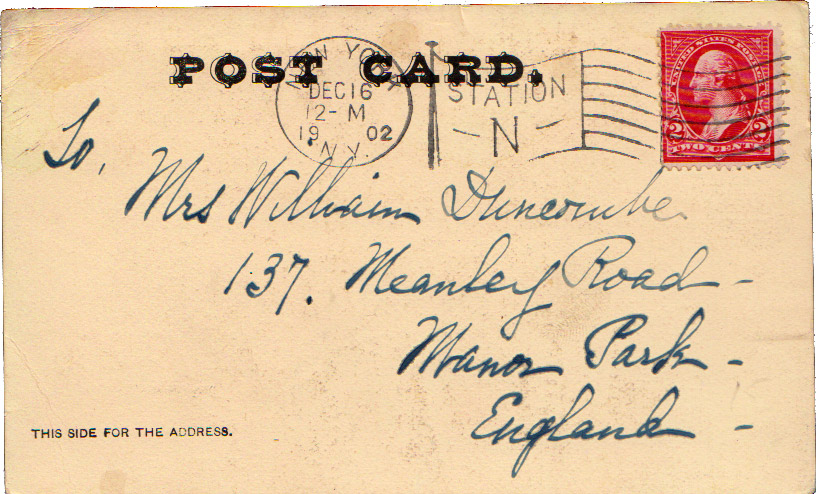 POST CARD.
NEW YORK
DEC 16
12-M
19 02
N.Y.
STATION
-N-
UNITED STATES POSTAGE
2 2
TWO CENTS
To,
Mrs William Duncombe
137. Meanley Road -
Manor Park -
England -
THIS SIDE FOR THE ADDRESS.